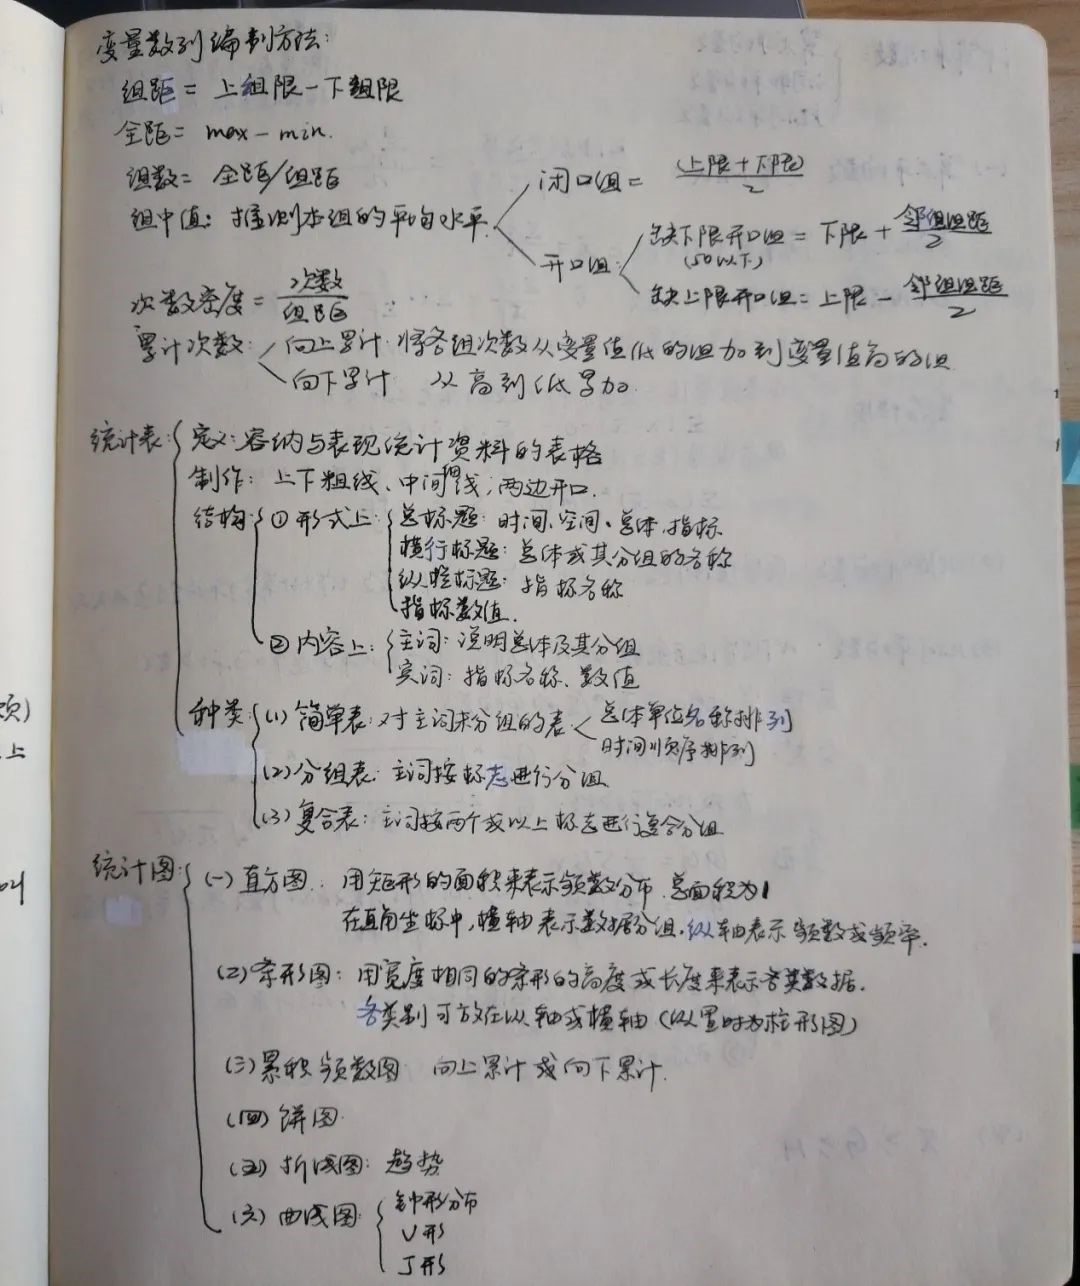 变量数列编制方法:
组距 = 上组限 - 下组限
全距 = max - min.
组数 = 全距/组距
组中值: 推测本组的平均水平 闭口组 = (上限+下限)/2
开口组: 缺下限开口组 = 下限 + 邻组组距/2
(50以下)
缺上限开口组 = 上限 - 邻组组距/2
次数密度 = 次数/组距
累计次数: 向上累计 将各组次数从变量值低的组加到变量值高的组
向下累计 从高到低累加
统计表: 定义: 容纳与表现统计资料的表格
制作: 上下粗线、中间细线; 两边开口.
结构: ① 形式上: 总标题: 时间、空间、总体、指标
横行标题: 总体或其分组的名称
纵栏标题: 指标名称
指标数值.
② 内容上: 主词: 说明总体及其分组
宾词: 指标名称、数值
种类: (1) 简单表: 对主词未分组的表 总体单位名称排列
时间顺序排列
(2) 分组表: 主词按标志进行分组
(3) 复合表: 主词按两个或以上标志进行复合分组
统计图: (一) 直方图: 用矩形的面积来表示频数分布 总面积为1
在直角坐标中,横轴表示数据分组,纵轴表示频数或频率.
(二) 条形图: 用宽度相同的条形的高度或长度来表示各类数据.
各类别可放在纵轴或横轴 (纵置时为柱形图)
(三) 累积频数图 向上累计或向下累计.
(四) 饼图
(五) 折线图: 趋势
(六) 曲线图: 钟形分布
U形
J形
上
叫